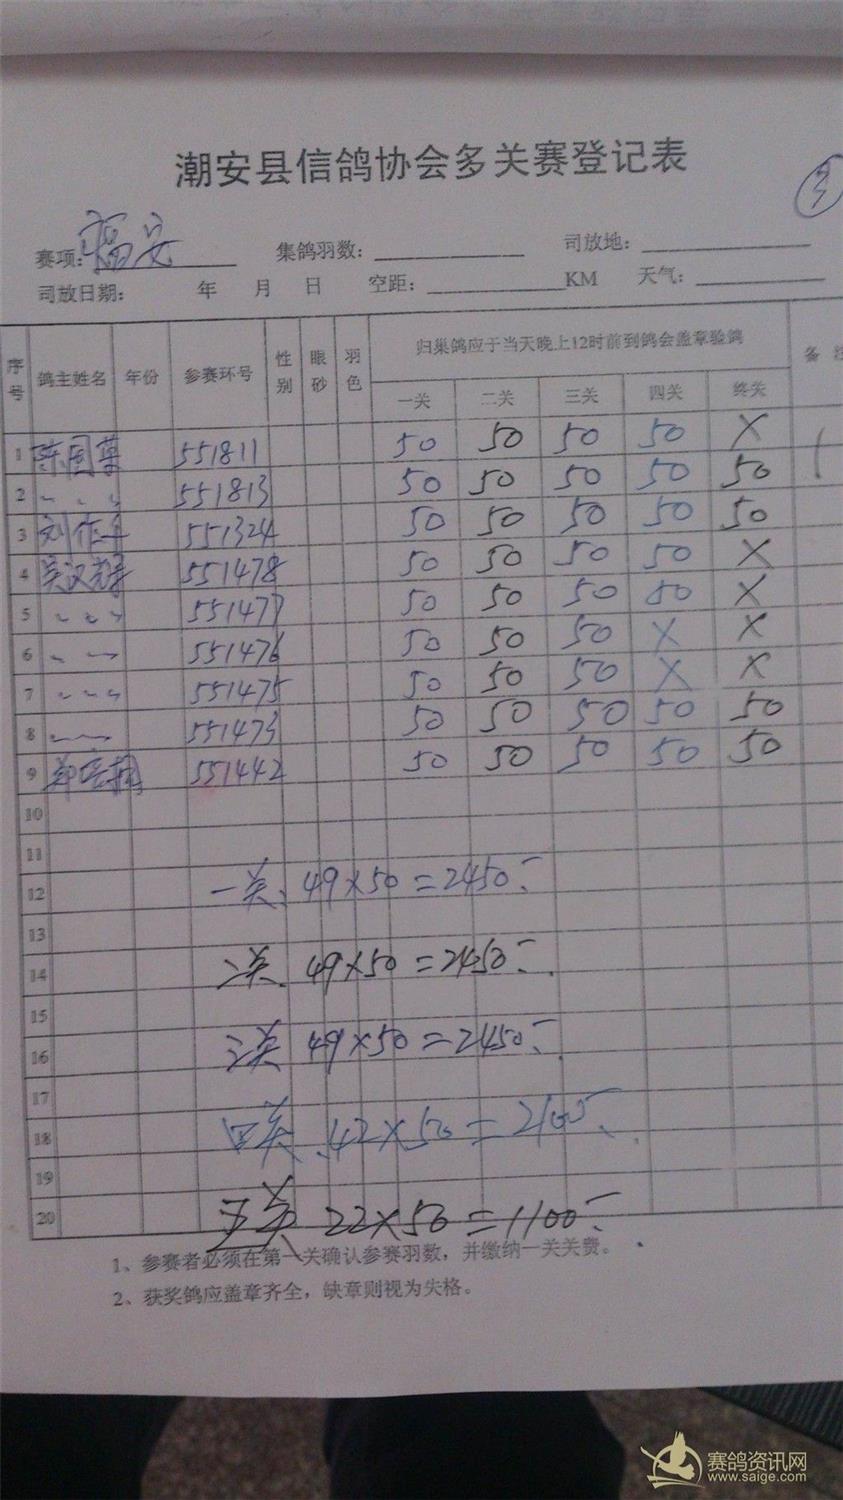 潮安县信鸽协会多关赛登记表
③
赛项: 福安 集鸽羽数: 司放地:
司放日期: 年 月 日 空距: KM 天气:
序号 鸽主姓名 年份 参赛环号 性别 眼砂 羽色 归巢鸽应于当天晚上12时前到鸽会盖章验鸽 备 注
一关 二关 三关 四关 终关
1 551811 50 50 50 50 X
2 〃 〃 〃 551813 50 50 50 50 50
3 刘作 551324 50 50 50 50 50
4 吴汉 551478 50 50 50 50 X
5 〃 〃 〃 551477 50 50 50 50 X
6 〃 〃 551476 50 50 50 X X
7 〃 〃 〃 551475 50 50 50 X X
8 〃 〃 551473 50 50 50 50 50
9 551442 50 50 50 50 50
10
11
12 一关. 49×50=2450-
13
14 二关. 49×50=2450-
15
16 三关 49×50=2450-
17
18 四关. 42×50=2100-
19
20 五关 22×50=1100-
1、参赛者必须在第一关确认参赛羽数，并缴纳一关关费。
2、获奖鸽应盖章齐全，缺章则视为失格。
赛鸽资讯网
www.saige.com